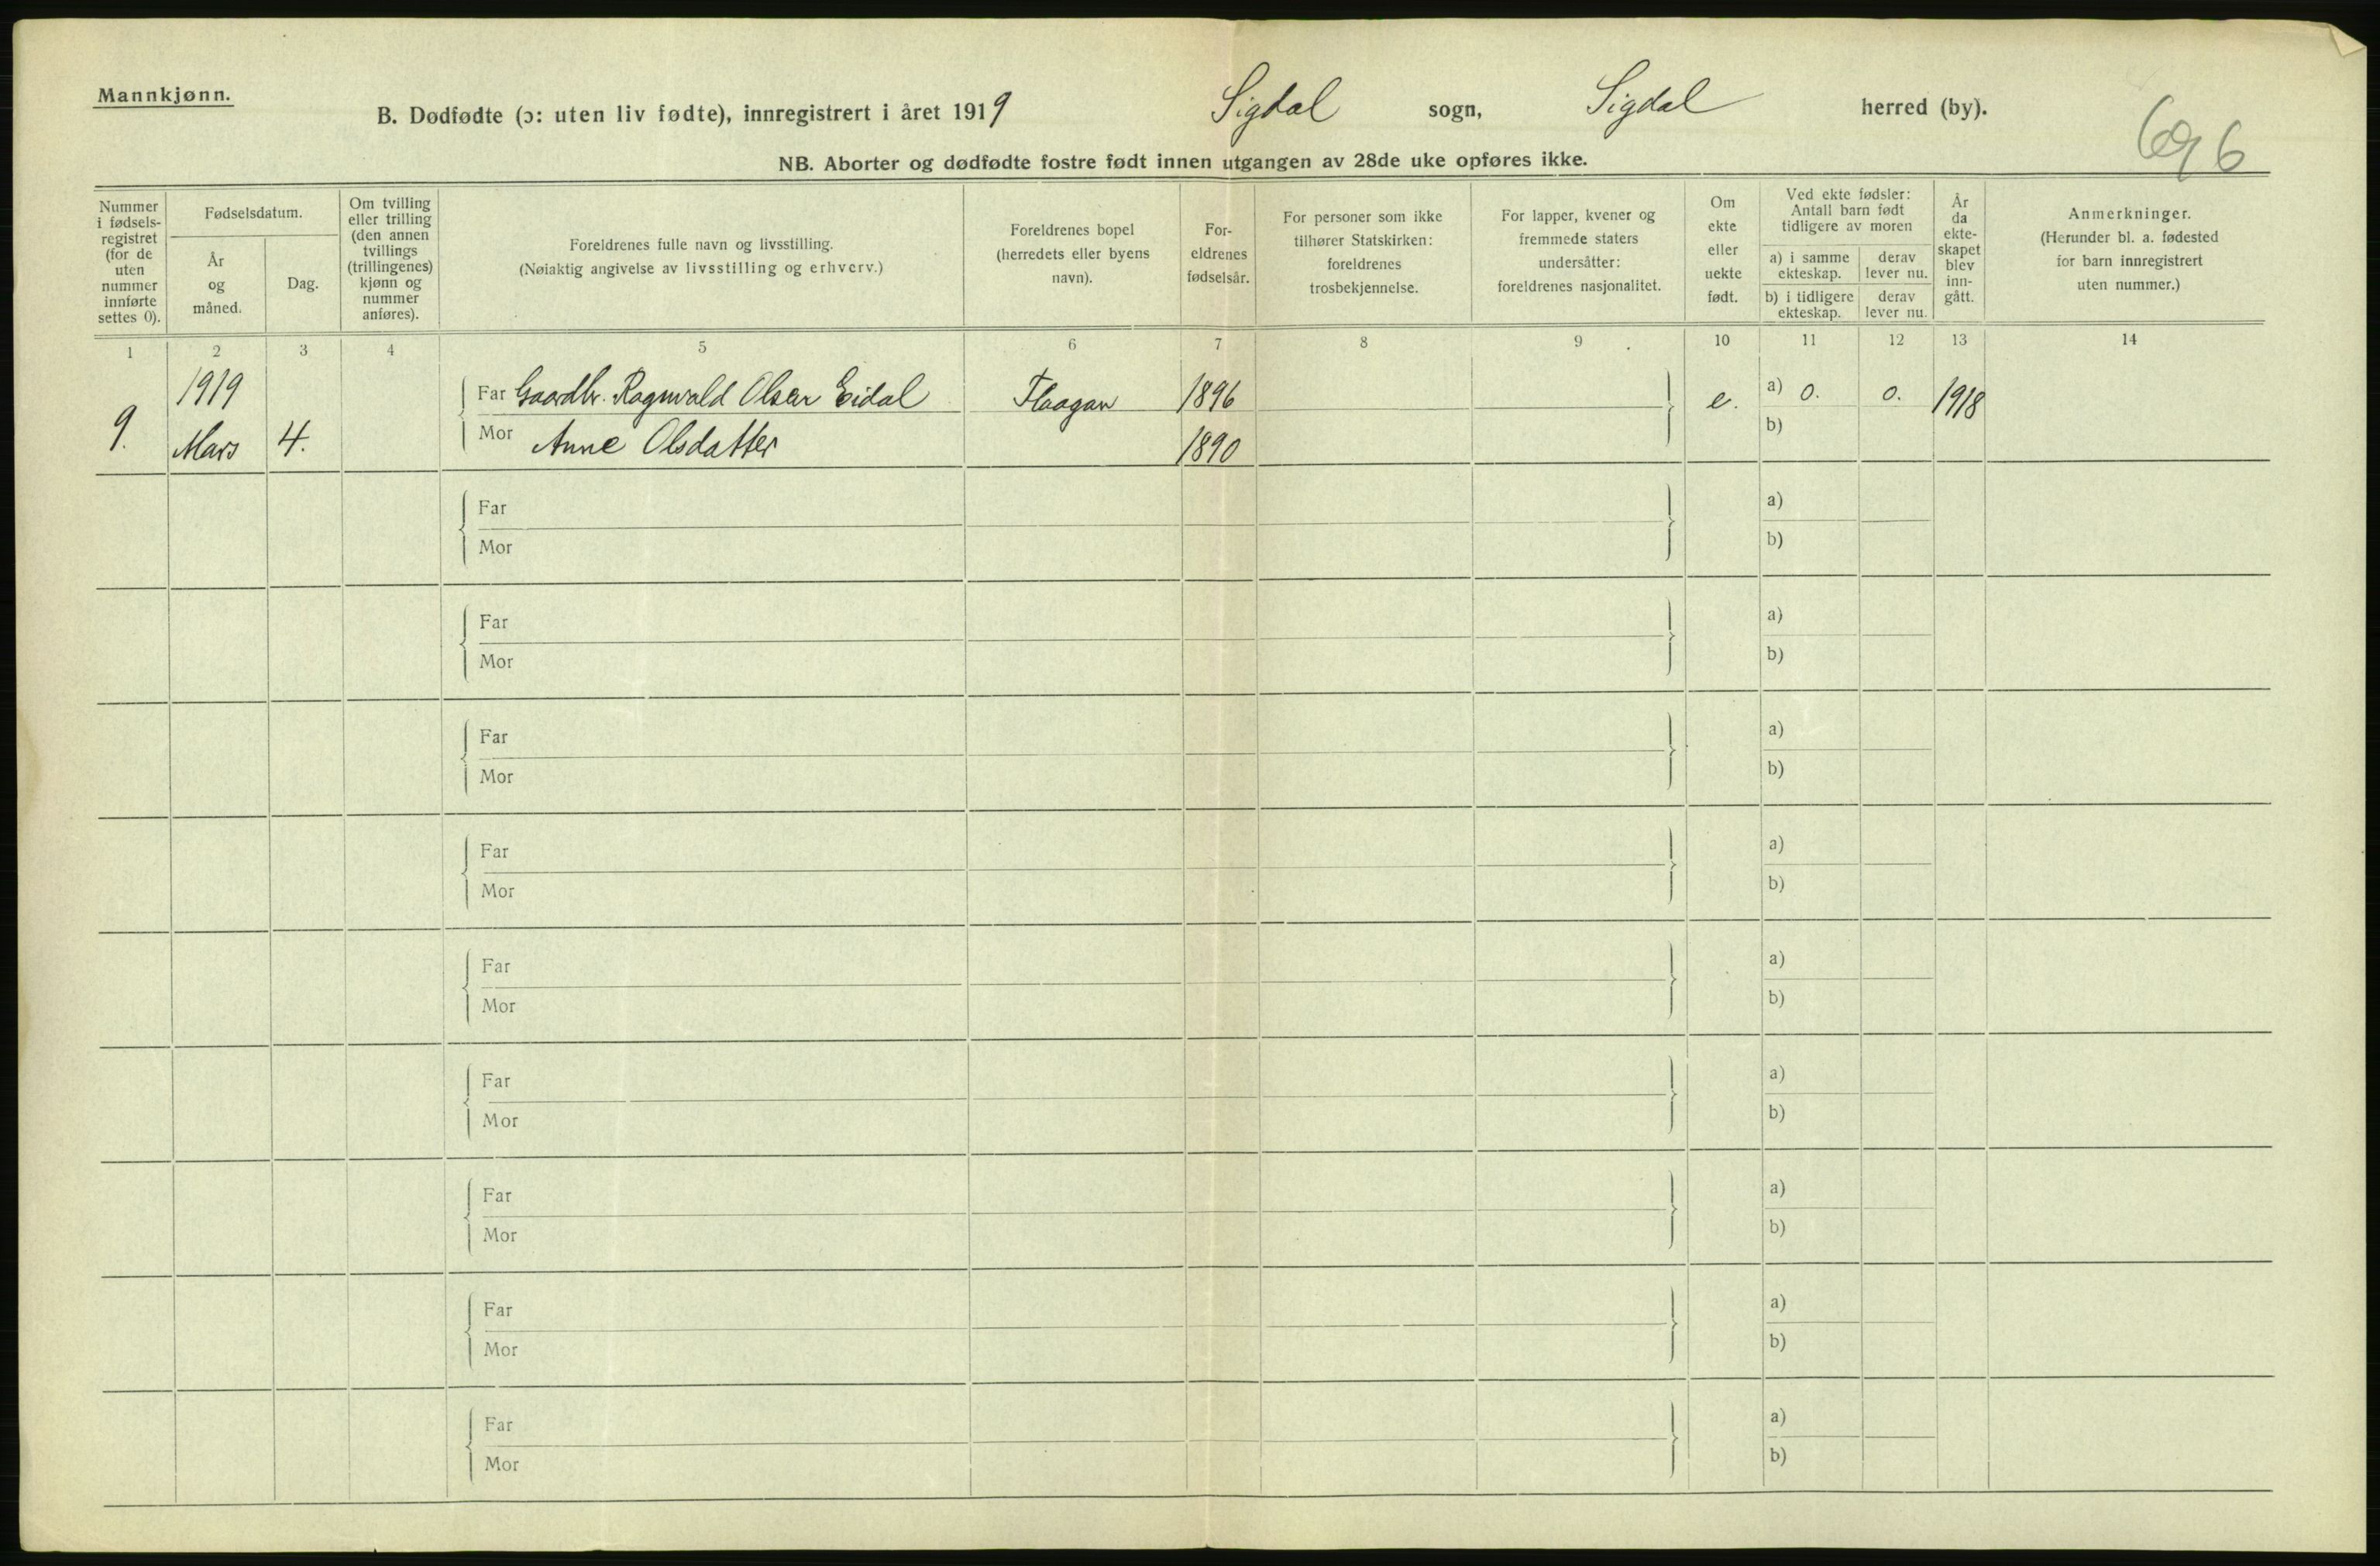 Mannkjønn.
B. Dødfødte (ɔ: uten liv fødte), innregistrert i året 1919 Sigdal sogn, Sigdal herred (by).
696
NB. Aborter og dødfødte fostre født innen utgangen av 28de uke opføres ikke.
Nummer i fødsels-registret (for de uten nummer innførte settes 0).
Fødselsdatum.
År og måned.
Dag.
Om tvilling eller trilling (den annen tvillings (trillingenes) kjønn og nummer anføres).
Foreldrenes fulle navn og livsstilling.
(Nøiaktig angivelse av livsstilling og erhverv.)
Foreldrenes bopel (herredets eller byens navn).
For-eldrenes fødselsår.
For personer som ikke tilhører Statskirken: foreldrenes trosbekjennelse.
For lapper, kvener og fremmede staters undersåtter: foreldrenes nasjonalitet.
Om ekte eller uekte født.
Ved ekte fødsler: Antall barn født tidligere av moren
a) i samme ekteskap.
derav lever nu.
b) i tidligere ekteskap.
derav lever nu.
År da ekte-skapet blev inn-gått.
Anmerkninger.
(Herunder bl. a. fødested for barn innregistrert uten nummer.)
1 2 3 4 5 6 7 8 9 10 11 12 13 14
1919 Far Gaardbr. Ragnvald Olsen Eidal 1896 e. a) 0. 0. 1918
9. Mars 4. Mor Anne Olsdatter 1890 b)
Far a)
Mor b)
Far a)
Mor b)
Far a)
Mor b)
Far a)
Mor b)
Far a)
Mor b)
Far a)
Mor b)
Far a)
Mor b)
Far a)
Mor b)
Far a)
Mor b)